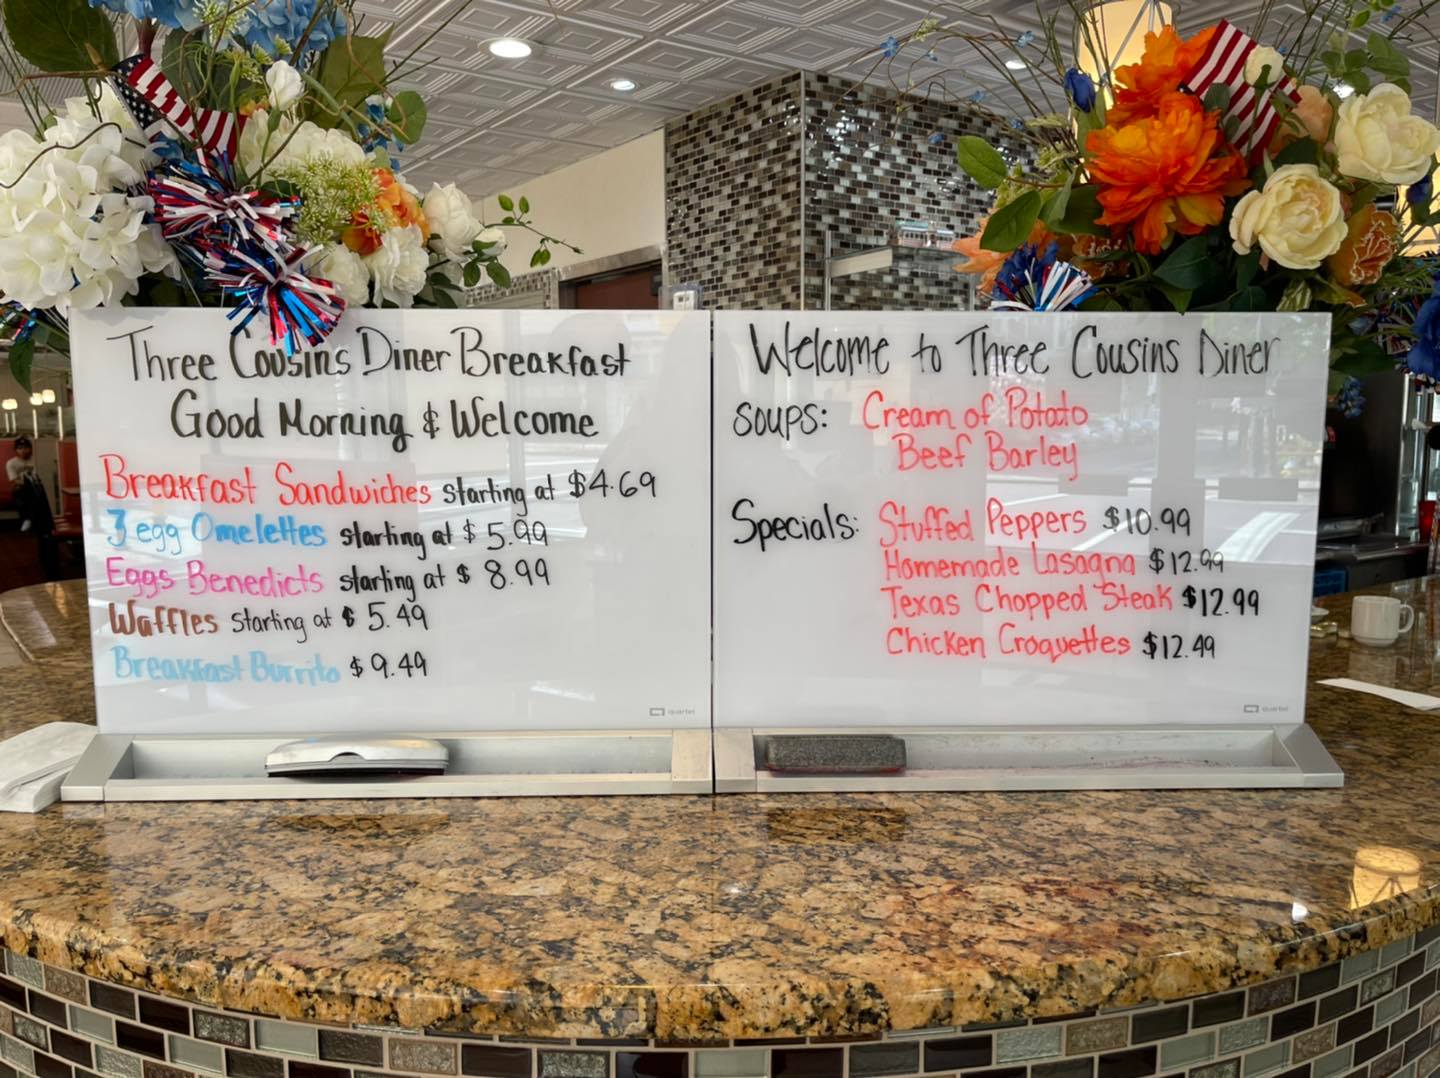 Three Cousins Diner Breakfast
Good Morning & Welcome
Breakfast Sandwiches starting at $4.69
3 egg Omelettes starting at $5.99
Eggs Benedicts starting at $8.99
Waffles starting at $5.49
Breakfast Burrito $9.49
quartet
Welcome to Three Cousins Diner
SOUPS: Cream of Potato
Beef Barley
Specials: Stuffed Peppers $10.99
Homemade Lasagna $12.99
Texas Chopped Steak $12.99
Chicken Croquettes $12.49
quartet